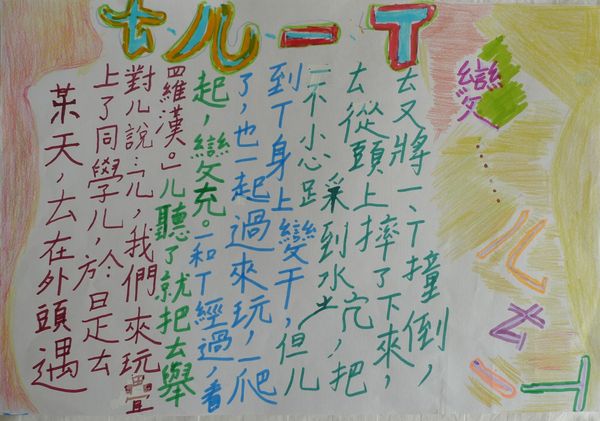 ㄊ、儿、一、丁
某天，ㄊ在外頭遇
上了同學儿，於是ㄊ
對儿說：「儿，我們來玩疊
羅漢。」儿聽了就把ㄊ舉
起，變充。一和丁經過，看
了，也一起過來玩，一爬
到丁身上變干，但儿
一不小心踩到水坑，把
ㄊ從頭上摔了下來，
ㄊ又將一、丁撞倒，
變......
儿
ㄊ
一
丁